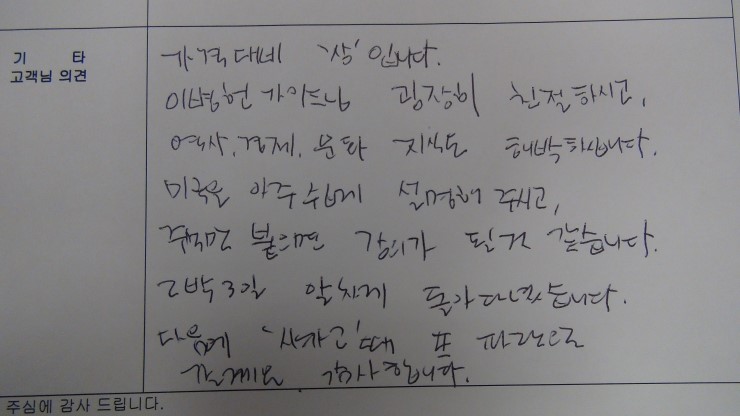 기 타
고객님 의견
가격대비 '상'입니다.
이병헌 가이드님 굉장히 친절하시고,
역사, 경제, 문화 지식도 해박하십니다.
미국을 아주 쉽게 설명해 주시고,
붙으면 강의가 될것 같습니다.
2박3일 알차게 돌아다녔습니다.
다음에 '시카고'때 또 파란으로
갈께요. 감사합니다.
주심에 감사 드립니다.